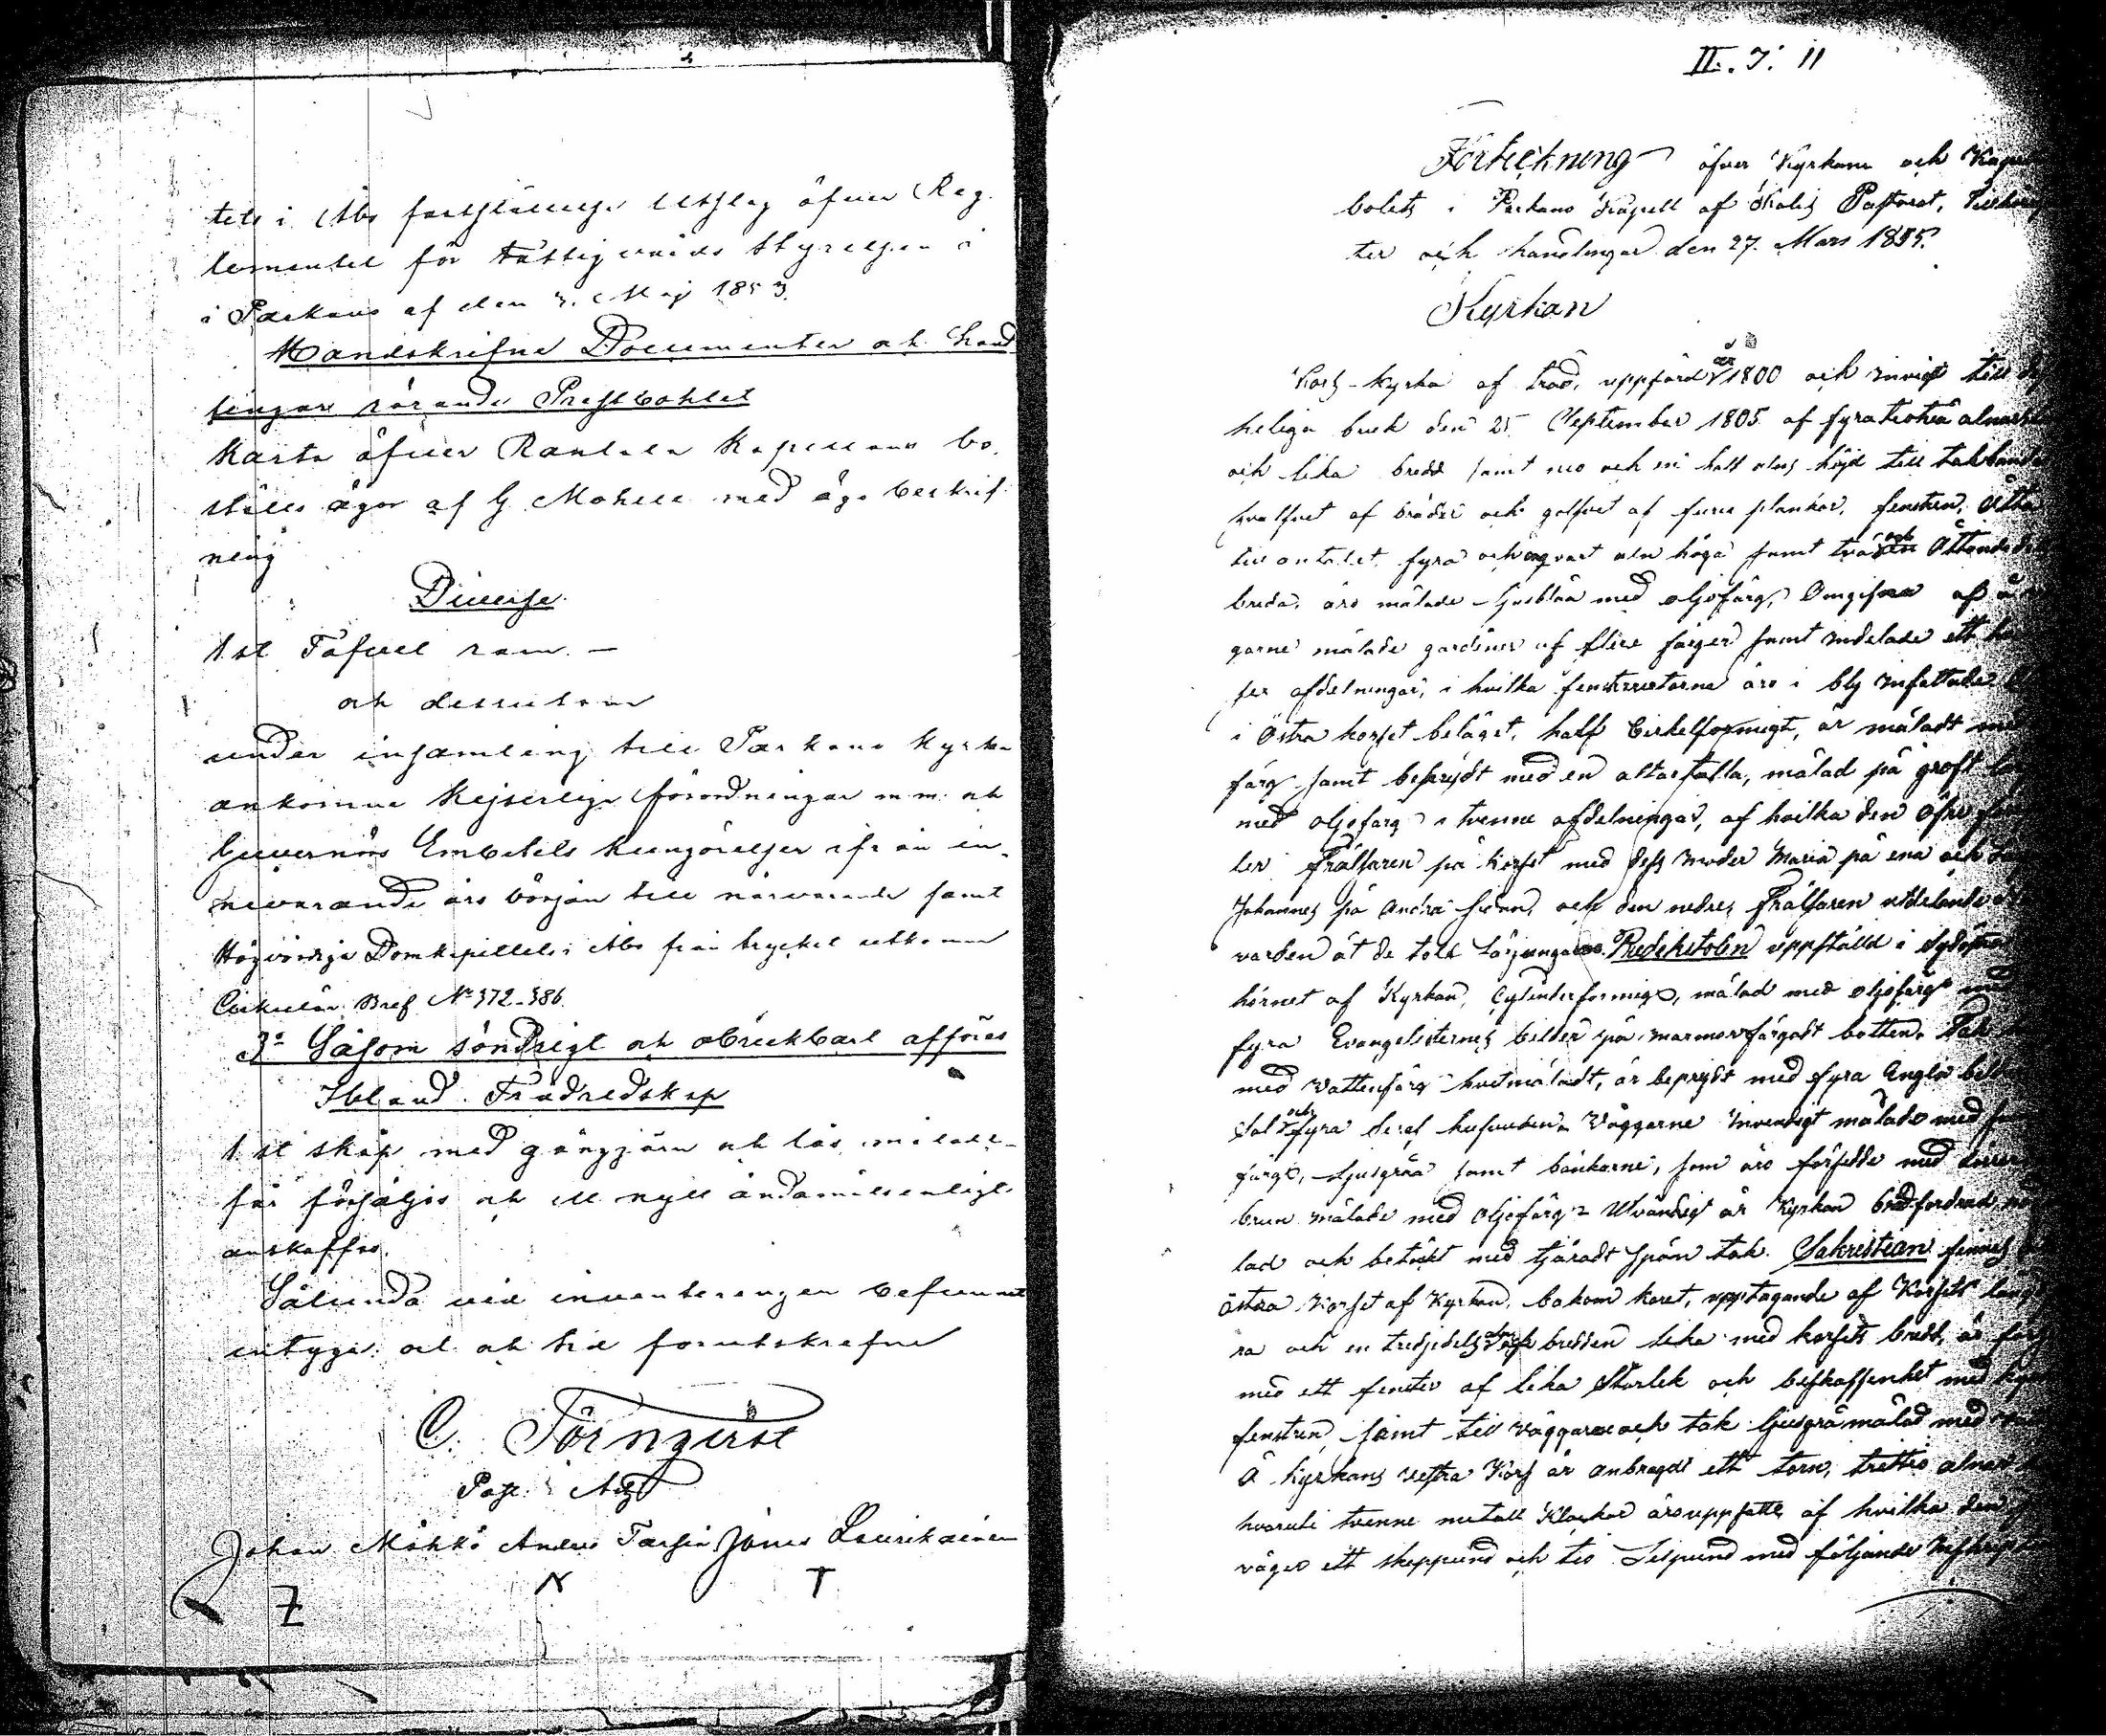 tels i Åbo fastställelse Utslag öfver Reg
lementet för Fattigvårds Styrelsen i
i Parkano af den 3. Maj 1853.
Handskrifne Documenter och Hand
lingar rörande Prestbohlet
Karta öfver Rantala Kapellans bo
ställes ägor af G Molin med ägo beskrif
ning
Diverse
1 st Tafvel ram. —
och dessutom
under insamling till Parkano Kyrka
ankomne Kejserliga förordningar m m. och
Guvernörs Embetets kungörelser ifrån in
nevarande års början till närvarande samt
Högvördige Domkapitlets i Åbo från trycket utkomna
Cirkulär Bref No 372-386.
3o Såsom söndrigt och obrukbart afföres
Ibland Trädredskap
1 st skåp med gångjärn och lås, måladt
får försäljas och ett nytt ändamålsenligt
anskaffas.
Sålunda vid inventeringen befunnet
intyga: ort och tid förutskrefne
C. Törnqvist
Past. Adj
Johan Mökkö Anders Tarsia Jonas Laurikainen
Z N T
II. J. 11
Förteckning öfver Kyrkans och
bolets i Parkano Kapell af Ikalis Pastorat,
ter och handlingar den 27. Mars 1855.
Kyrkan
Kors-kyrka af träd, uppförd år 1800 och invigd till
heliga bruk den 25 September 1805. af fyratiotvå alnars
och lika bredd samt nio och en half alns höjd till takbandet
hvalfvet af bräder och golfvet af furu plankor, fenstren, åtta
till antalet, fyra och en qvart aln höga samt två och en Åttondedels
breda, äro målade ljusblåa med oljefärg, Omgifna af å
garne målade gardiner af flere färger samt indelade ett hvar
fer afdelningar, i hvilka fensterrutorna äro i bly infattade
i Östra korset beläget, half Cirkelformigt, är måladt med
färg samt beprydt med en altartafla, målad på groft
med oljefärg i tvenne afdelningar, af hvilka den öfre
ler Frälsaren på korset med dess moder Maria på ena och
Johannes på andra sidan, och den nedre, Frälsaren utdelande
varden åt de tolf Lärjungarne. Predikstolen uppställd i Sydöstra
hörnet af Kyrkan, Cylinderformig, målad med oljefärg med
fyra Evangelisternes bilder på marmorfärgadt botten. Tak
med Vattenfärg hvitmåladt, är beprydt med fyra Engla bilder
Sol och fyra Seraf hufvuden. Väggarne invändigt målade med
färg, ljusgråa samt bänkarne, som äro försedde med dörrar
brun målade med Oljefärg. Utvändigt är Kyrkan brädfordrad,
lad och betäckt med tjäradt Spån tak. Sakristian finnes
östra Korset af Kyrkan, bakom koret, upptagande af Korsets längd
ra och en tredjedels aln och bredden lika med korsets bredd, är för
med ett fenster af lika Storlek och beskaffenhet med kyrko
fenstren, samt till väggarne och tak ljusgrå målad med
Å Kyrkans vestra Kors är anbragdt ett torn, trettio alnar
hvaruti tvenne metall Klockor äro uppsatte af hvilka den
väger ett skeppund och tio Lispund med följande Inskription